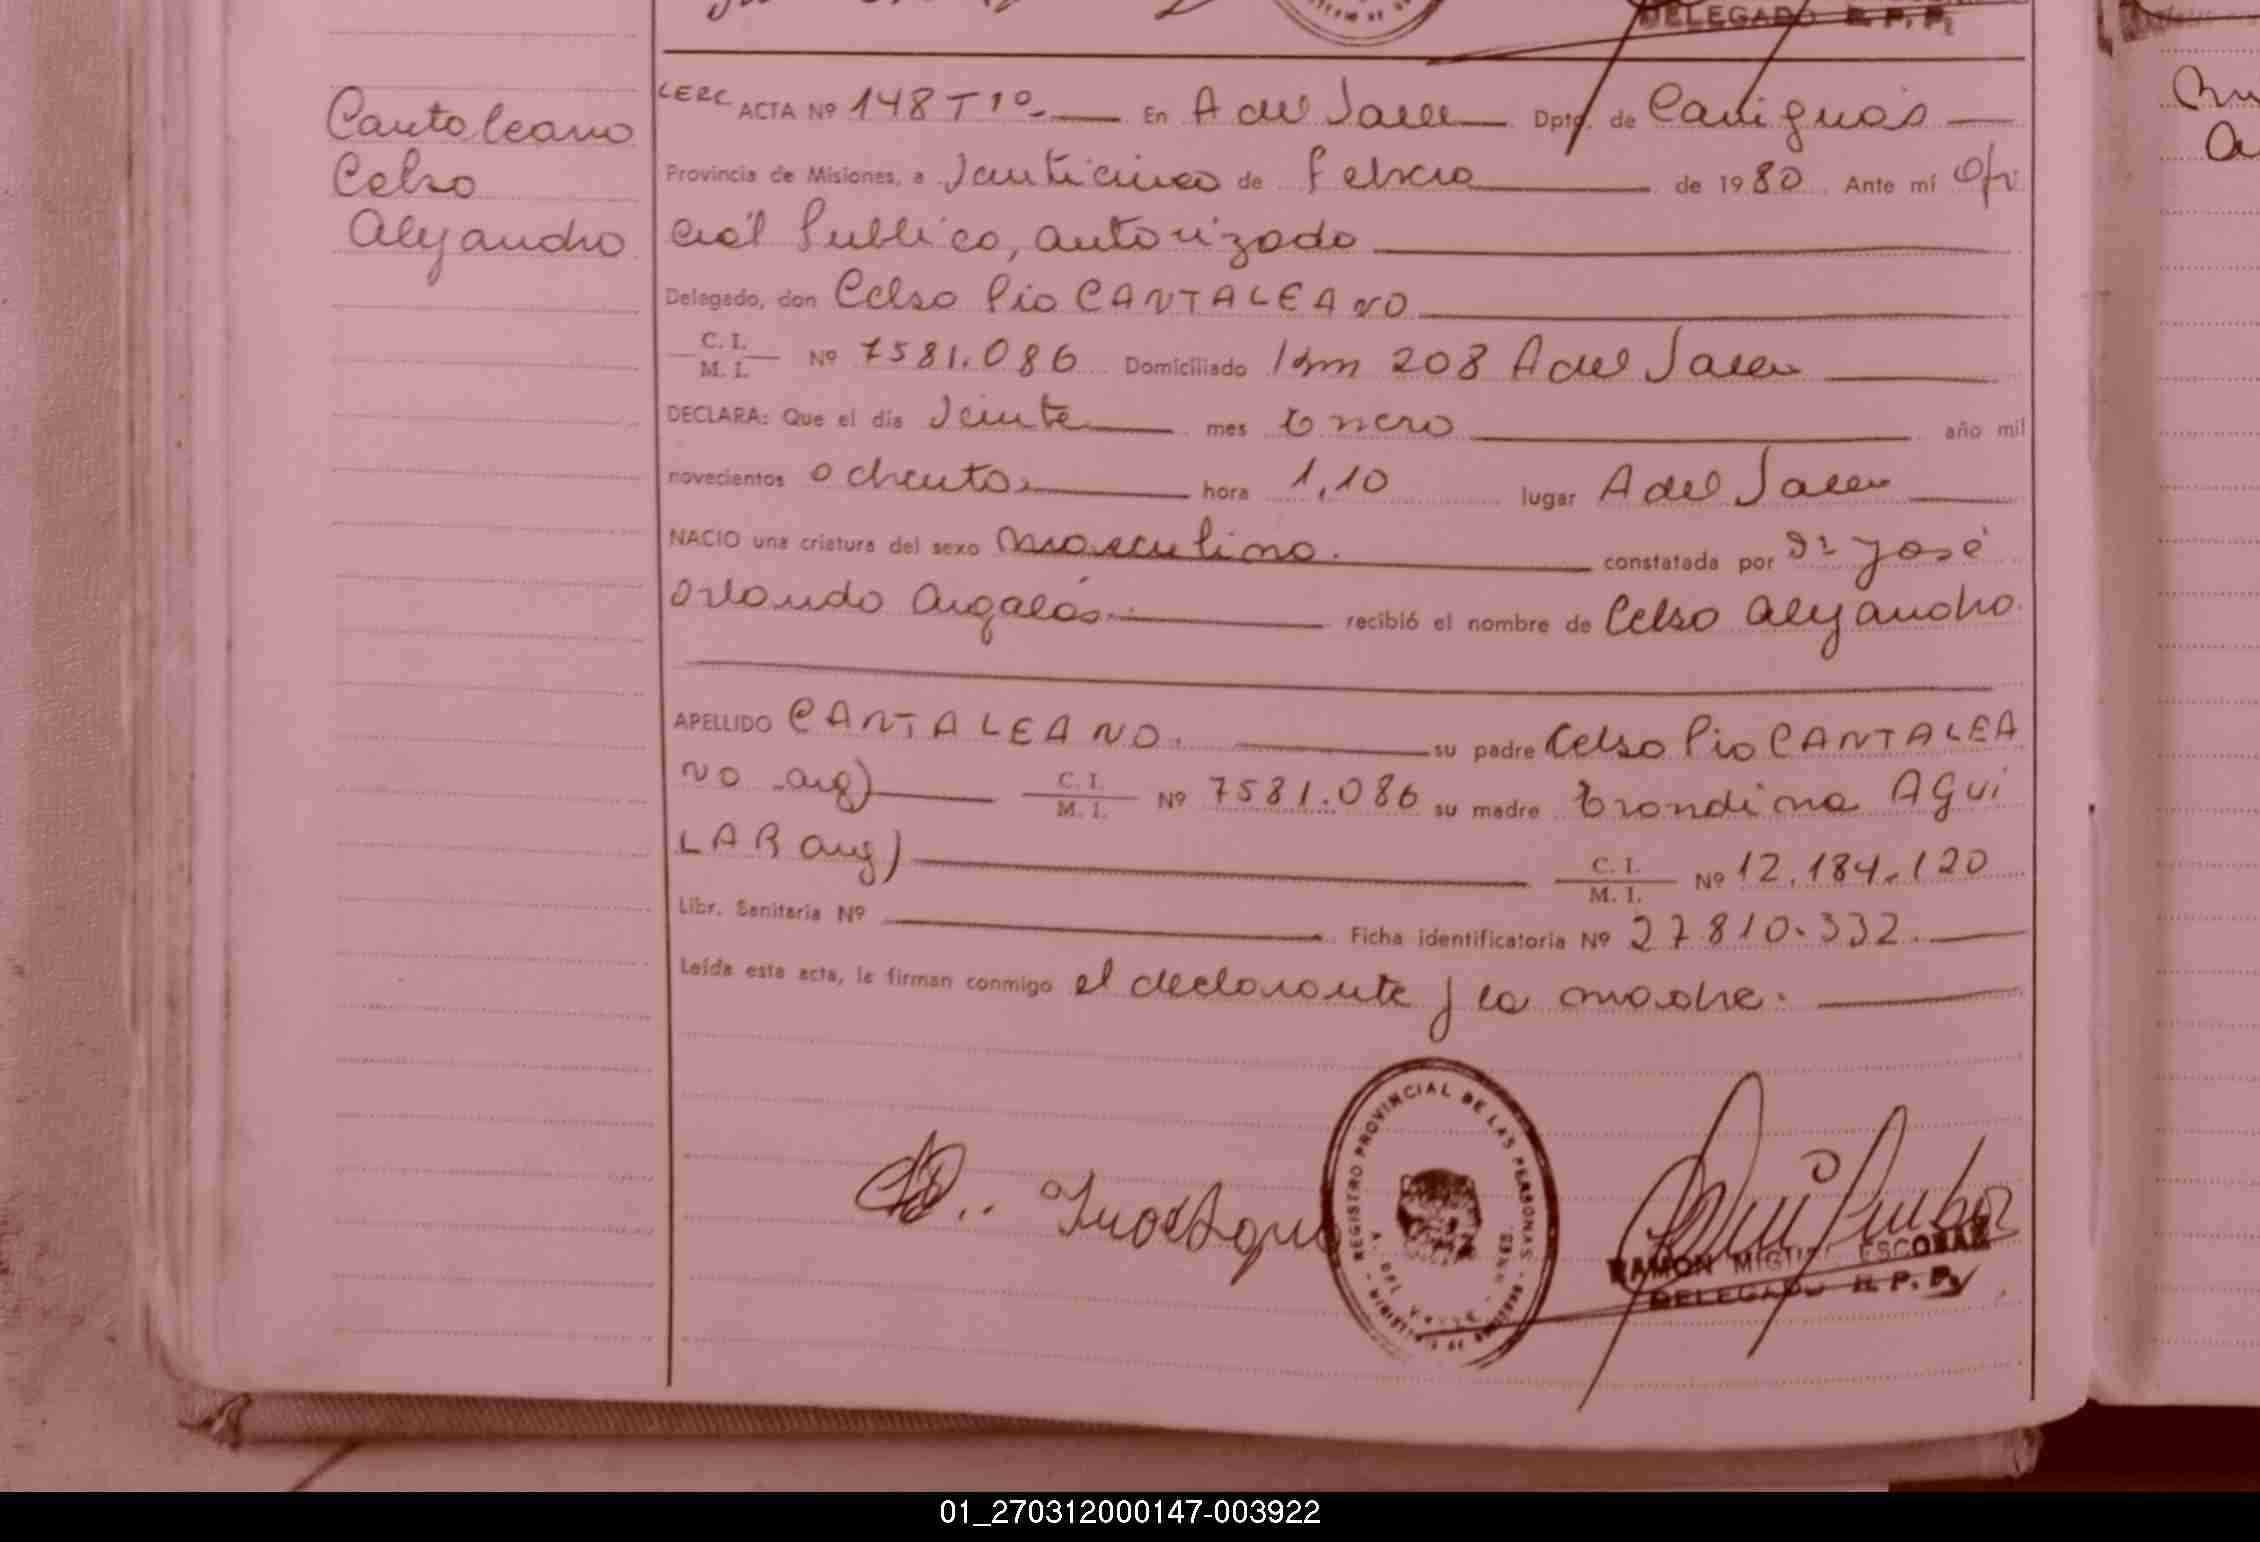 DELEGADO R. P. P.
Cantaleano
Celso
Alejandro
CERC ACTA Nº 148 T 1º En A del Valle Dptg. de Cainguás
Provincia de Misiones, a Veinticinco de Febrero de 1980 Ante mí Ofi
cial Publico, autorizado
Delegado, don Celso Pio CANTALEANO
C. I.
M. I. Nº 7581.086 Domiciliado Km 208 A del Valle
DECLARA: Que el día Veinte mes Enero año mil
novecientos ochenta hora 1,10 lugar A del Valle
NACIO una criatura del sexo masculino. constatada por Dr José
Orlando Argalás recibió el nombre de Celso Alejandro.
APELLIDO CANTALEANO. su padre Celso Pio CANTALEA
NO arg) C. I. M. I. Nº 7581.086 su madre Erondina AGUI
LAR arg) C. I. M. I. Nº 12.184.120
Libr. Sanitaria Nº Ficha identificatoria Nº 27810.332.
Leída esta acta, la firman conmigo el declarante y la madre.
REGISTRO PROVINCIAL DE LAS PERSONAS
A. DEL VALLE
RAMON MIGUEL ESCOBAR
DELEGADO R. P. P.
01_270312000147-003922